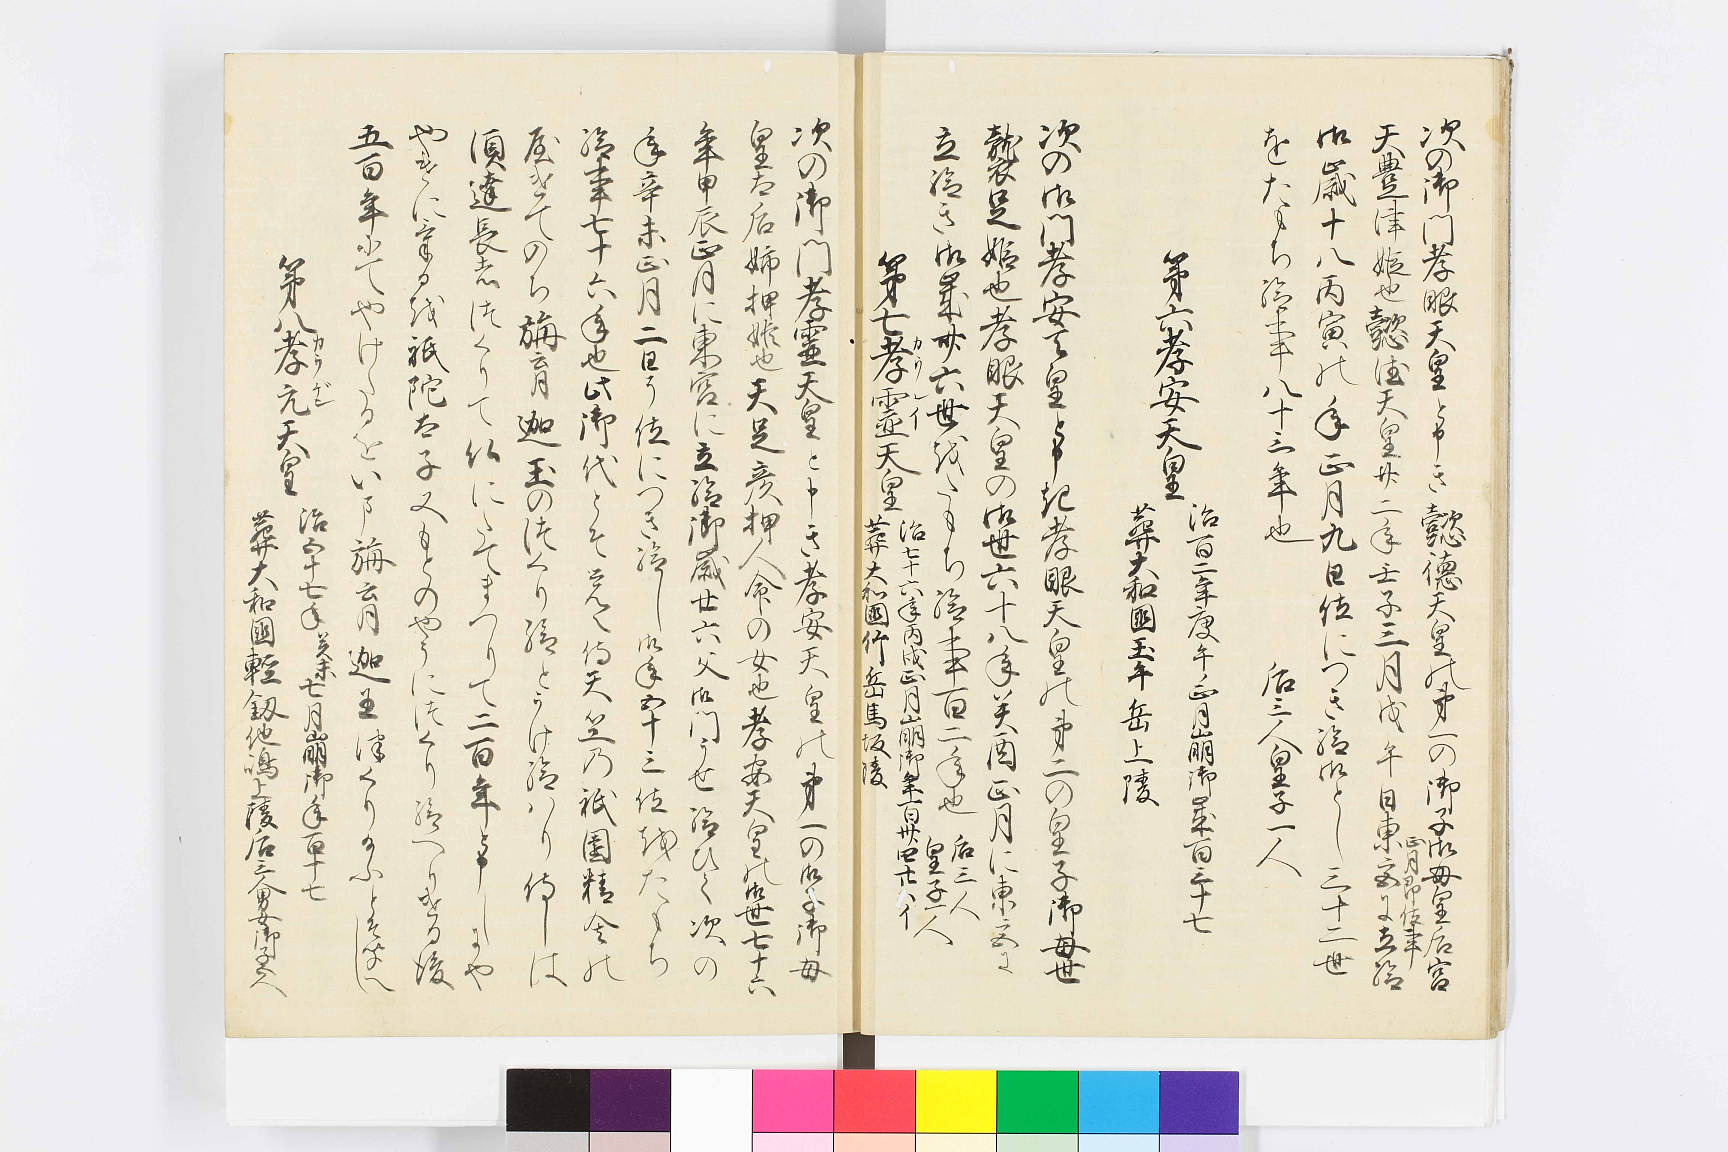 次の御門孝眼天皇と申き懿徳天皇の第一の御子御母皇后宮
天豊津姫也懿徳天皇廿二年壬子三月戊午日東宮に立給
正月即位事
御歳十八丙寅の年正月九日位につき給御とし三十二世
をたもち給事八十三年也
后三人皇子一人
第六孝安天皇
治百二年庚午正月崩御歳百三十七
葬大和國玉年岳上陵
次の御門孝安天皇と申き孝眼天皇の第二の皇子御母世
襲足姫也孝眼天皇の御世六十八年癸酉正月に東宮に
立給き御歳卅六世をたもち給事百二年也
后三人
皇子一人
第七孝霊天皇
カウレイ
治七十六年丙戌正月崩御年百卅四
葬大和國竹岳馬坂陵
次の御門孝靈天皇と申き孝安天皇の第一の御子御母
皇太后姉押姫也天足彦押人命の女也孝安天皇の御世七十六
年甲辰正月に東宮に立給御歳廿六父御門うせ給ひて次の
年辛未正月二日そ位につき給し御年五十三位をたもち
給事七十六年也此御代とそ覚へ侍天竺乃祇園精舎の
屋けてのち旃育迦王のつくり給とうけ給はり侍しは
須達長者つくりて仏にたてまつりて二百年と申しにや
やけに寺を祇陀太子又もとのやうにつくり給へりける後
五百年にてやけたるをいま旃育迦王つくりかふとそ
第八孝元天皇
カウゲン
治五十七年癸未七月崩御年百十七
葬大和國軽釼池嶋上陵后三人男女御子